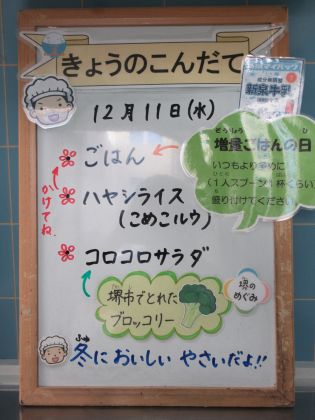 きょうのこんだて
新泉牛乳
12月11日(水)
ぞうりょう ひ
増量ごはんの日
いつもより多めに
(1人スプーン1杯くらい)
盛り付けてください
ごはん
かけてね
ハヤシライス
(こめこルウ)
コロコロサラダ
堺市でとれた
ブロッコリー
堺の
めぐみ
ふゆ
冬に おいしい やさいだよ!!